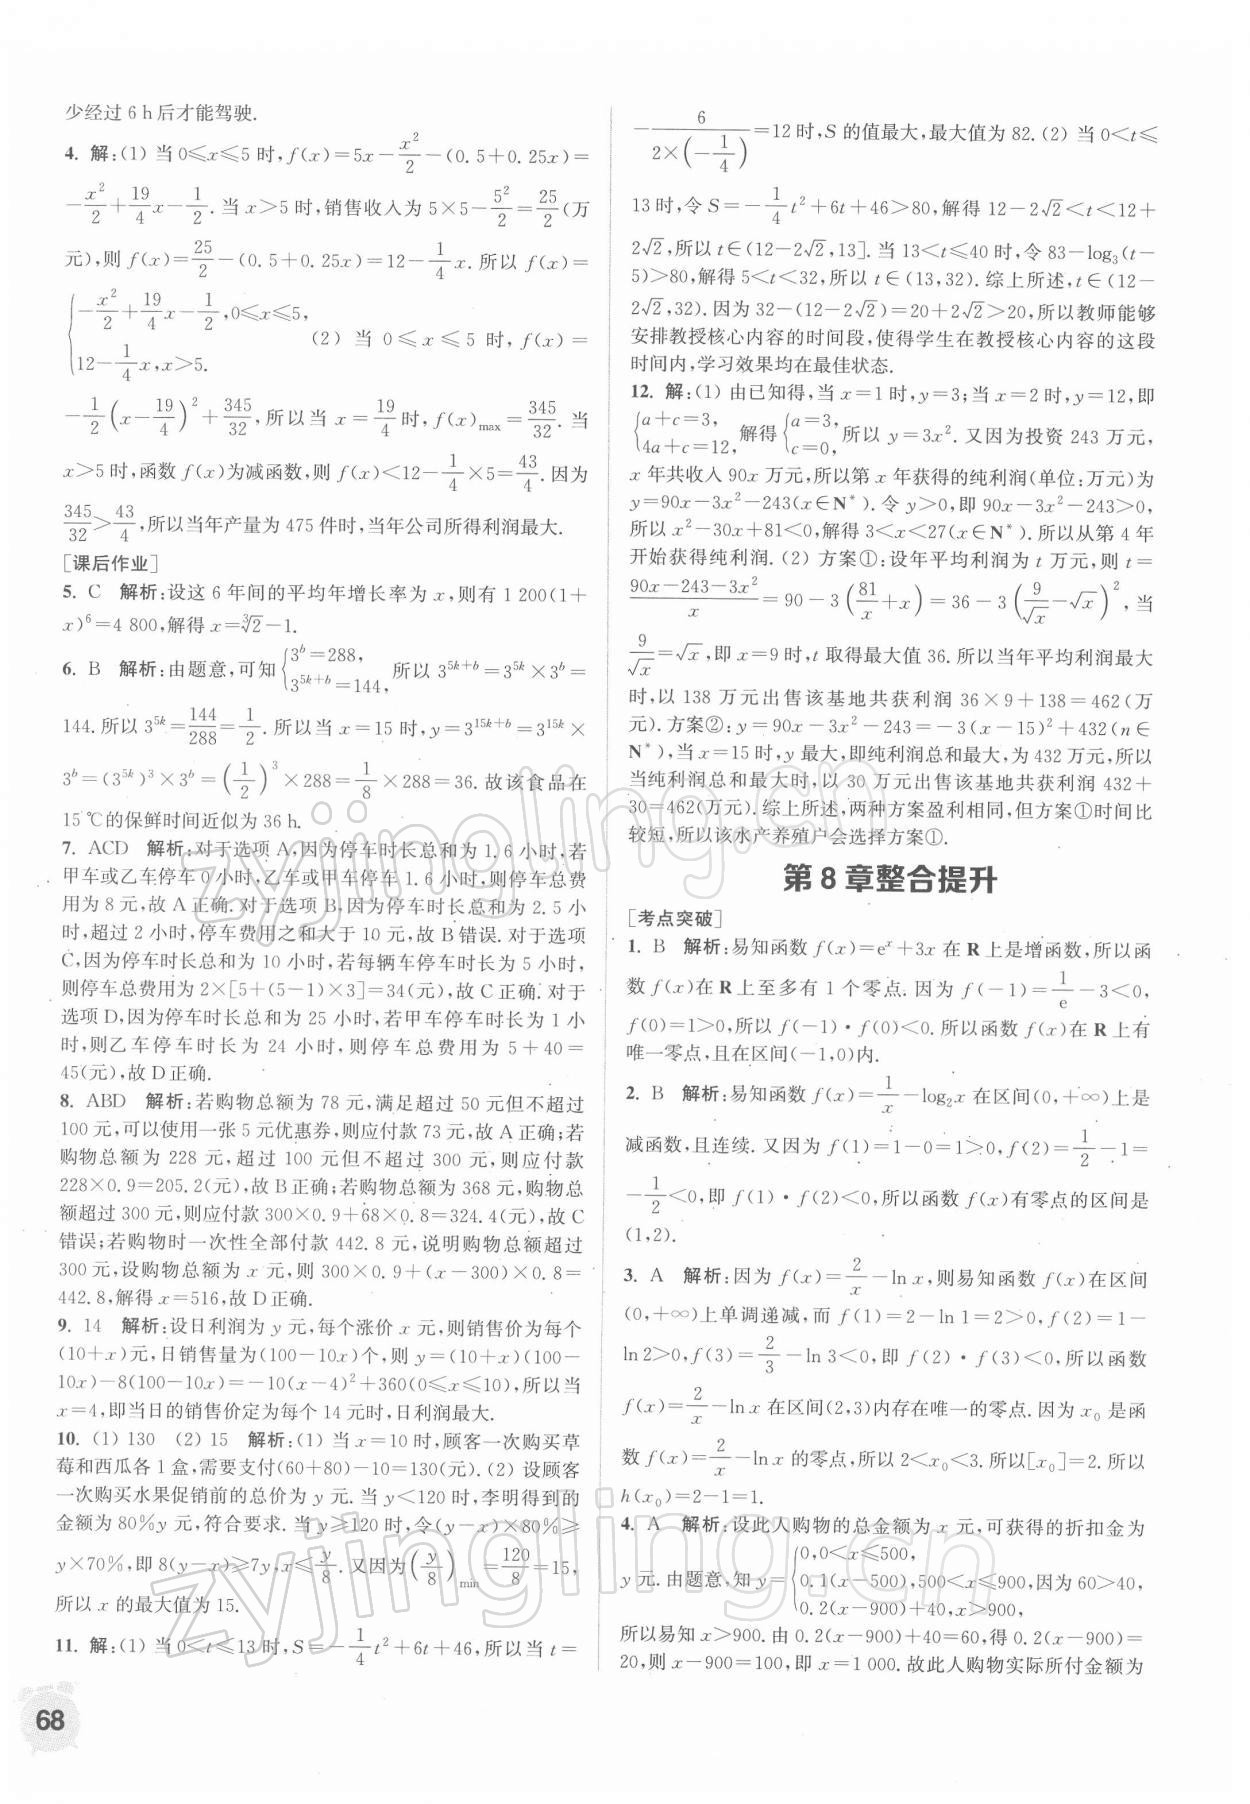 少经过 6 h 后才能驾驶.
4. 解:(1) 当 0≤x≤5 时, f(x)=5x-x²/2-(0.5+0.25x)=
-x²/2+19/4x-1/2. 当 x>5 时,销售收入为 5×5-5²/2=25/2(万
元),则 f(x)=25/2-(0.5+0.25x)=12-1/4x. 所以 f(x)=
{-x²/2+19/4x-1/2,0≤x≤5,
12-1/4x,x>5.
(2) 当 0≤x≤5 时, f(x)=
-1/2(x-19/4)²+345/32,所以当 x=19/4时, f(x)max=345/32. 当
x>5 时,函数 f(x)为减函数,则 f(x)<12-1/4×5=43/4. 因为
345/32>43/4,所以当年产量为 475 件时,当年公司所得利润最大.
[课后作业]
5. C 解析:设这 6 年间的平均年增长率为 x,则有 1 200(1+
x)⁶=4 800,解得 x=∛2-1.
6. B 解析:由题意,可知{3^b=288, 3^(5k+b)=144, 所以 3^(5k+b)=3^(5k)×3^b=
144. 所以 3^(5k)=144/288=1/2. 所以当 x=15 时,y=3^(15k+b)=3^(15k)×
3^b=(3^(5k))³×3^b=(1/2)³×288=1/8×288=36. 故该食品在
15 ℃的保鲜时间近似为 36 h.
7. ACD 解析:对于选项 A,因为停车时长总和为 1.6 小时,若
甲车或乙车停车 0 小时,乙车或甲车停车 1.6 小时,则停车总费
用为 8 元,故 A 正确. 对于选项 B,因为停车时长总和为 2.5 小
时,超过 2 小时,停车费用之和大于 10 元,故 B 错误. 对于选项
C,因为停车时长总和为 10 小时,若每辆车停车时长为 5 小时,
则停车总费用为 2×[5+(5-1)×3]=34(元),故 C 正确. 对于
选项 D,因为停车时长总和为 25 小时,若甲车停车时长为 1 小
时,则乙车停车时长为 24 小时,则停车总费用为 5+40=
45(元),故 D 正确.
8. ABD 解析:若购物总额为 78 元,满足超过 50 元但不超过
100 元,可以使用一张 5 元优惠券,则应付款 73 元,故 A 正确;若
购物总额为 228 元,超过 100 元但不超过 300 元,则应付款
228×0.9=205.2(元),故 B 正确;若购物总额为 368 元,购物总
额超过 300 元,则应付款 300×0.9+68×0.8=324.4(元),故 C
错误;若购物时一次性全部付款 442.8 元,说明购物总额超过
300 元,设购物总额为 x 元,则 300×0.9+(x-300)×0.8=
442.8,解得 x=516,故 D 正确.
9. 14 解析:设日利润为 y 元,每个涨价 x 元,则销售价为每个
(10+x)元,日销售量为(100-10x)个,则 y=(10+x)(100-
10x)-8(100-10x)=-10(x-4)²+360(0≤x≤10),所以当
x=4,即当日的销售价定为每个 14 元时,日利润最大.
10. (1) 130 (2) 15 解析:(1) 当 x=10 时,顾客一次购买草
莓和西瓜各 1 盒,需要支付(60+80)-10=130(元). (2) 设顾客
一次购买水果促销前的总价为 y 元. 当 y<120 时,李明得到的
金额为 80%y 元,符合要求. 当 y≥120 时,令(y-x)×80%≥
y×70%,即 8(y-x)≥7y,x≤y/8. 又因为(y/8)min=120/8=15,
所以 x 的最大值为 15.
11. 解:(1) 当 0<t≤13 时,S=-1/4t²+6t+46,所以当 t=
-6/(2×(-1/4))=12 时,S 的值最大,最大值为 82. (2) 当 0<t≤
13 时,令 S=-1/4t²+6t+46>80,解得 12-2√2<t<12+
2√2,所以 t∈(12-2√2,13]. 当 13<t≤40 时,令 83-log₃(t-
5)>80,解得 5<t<32,所以 t∈(13,32). 综上所述,t∈(12-
2√2,32). 因为 32-(12-2√2)=20+2√2>20,所以教师能够
安排教授核心内容的时间段,使得学生在教授核心内容的这段
时间内,学习效果均在最佳状态.
12. 解:(1) 由已知得,当 x=1 时,y=3;当 x=2 时,y=12,即
{a+c=3, 4a+c=12, 解得{a=3, c=0, 所以 y=3x². 又因为投资 243 万元,
x 年共收入 90x 万元,所以第 x 年获得的纯利润(单位:万元)为
y=90x-3x²-243(x∈N*). 令 y>0,即 90x-3x²-243>0,
所以 x²-30x+81<0,解得 3<x<27(x∈N*). 所以从第 4 年
开始获得纯利润. (2) 方案①:设年平均利润为 t 万元,则 t=
(90x-243-3x²)/x=90-3(81/x+x)=36-3(9/√x-√x)²,当
9/√x=√x,即 x=9 时,t 取得最大值 36. 所以当年平均利润最大
时,以 138 万元出售该基地共获利润 36×9+138=462(万
元). 方案②:y=90x-3x²-243=-3(x-15)²+432(n∈
N*),当 x=15 时,y 最大,即纯利润总和最大,为 432 万元,所以
当纯利润总和最大时,以 30 万元出售该基地共获利润 432+
30=462(万元). 综上所述,两种方案盈利相同,但方案①时间比
较短,所以该水产养殖户会选择方案①.
第 8 章整合提升
[考点突破]
1. B 解析:易知函数 f(x)=eˣ+3x 在 R 上是增函数,所以函
数 f(x)在 R 上至多有 1 个零点. 因为 f(-1)=1/e-3<0,
f(0)=1>0,所以 f(-1)·f(0)<0. 所以函数 f(x)在 R 上有
唯一零点,且在区间(-1,0)内.
2. B 解析:易知函数 f(x)=1/x-log₂x 在区间(0,+∞)上是
减函数,且连续. 又因为 f(1)=1-0=1>0, f(2)=1/2-1=
-1/2<0,即 f(1)·f(2)<0,所以函数 f(x)有零点的区间是
(1,2).
3. A 解析:因为 f(x)=2/x-ln x,则易知函数 f(x)在区间
(0,+∞)上单调递减,而 f(1)=2-ln 1=2>0, f(2)=1-
ln 2>0, f(3)=2/3-ln 3<0,即 f(2)·f(3)<0,所以函数
f(x)=2/x-ln x 在区间(2,3)内存在唯一的零点. 因为 x₀ 是函
数 f(x)=2/x-ln x 的零点,所以 2<x₀<3. 所以[x₀]=2. 所以
h(x₀)=2-1=1.
4. A 解析:设此人购物的总金额为 x 元,可获得的折扣金为
y 元. 由题意,知 y={0,0<x≤500,
0.1(x-500),500<x≤900,
0.2(x-900)+40,x>900,
因为 60>40,
所以易知 x>900. 由 0.2(x-900)+40=60,得 0.2(x-900)=
20,则 x-900=100,即 x=1 000. 故此人购物实际所付金额为
68
zyjingling.cn
zyjingling.cn